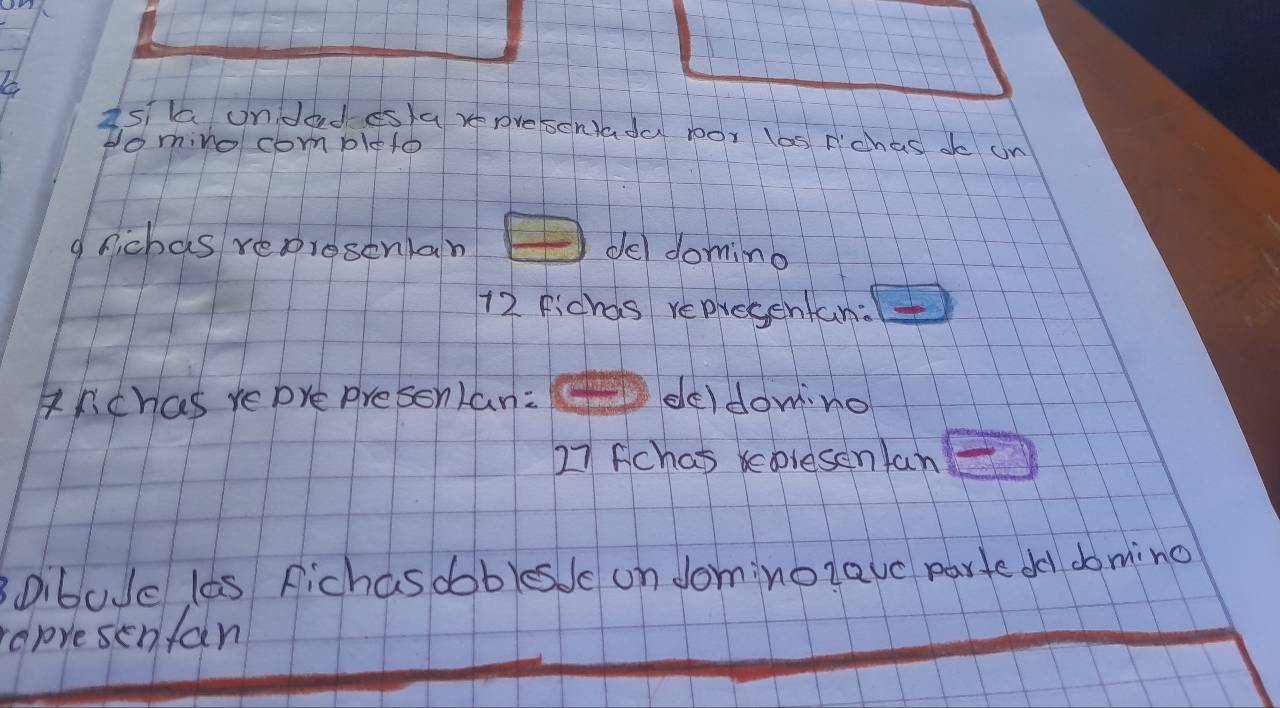 2 si la unidad esta representada por las fichas de un
domino completo
9 fichas representan del domino
12 fichas representan:
7 fichas reprepresentan: del domino
27 fichas representan
3 Dibuje las fichas dobles de un domino? que parte del domino
representan